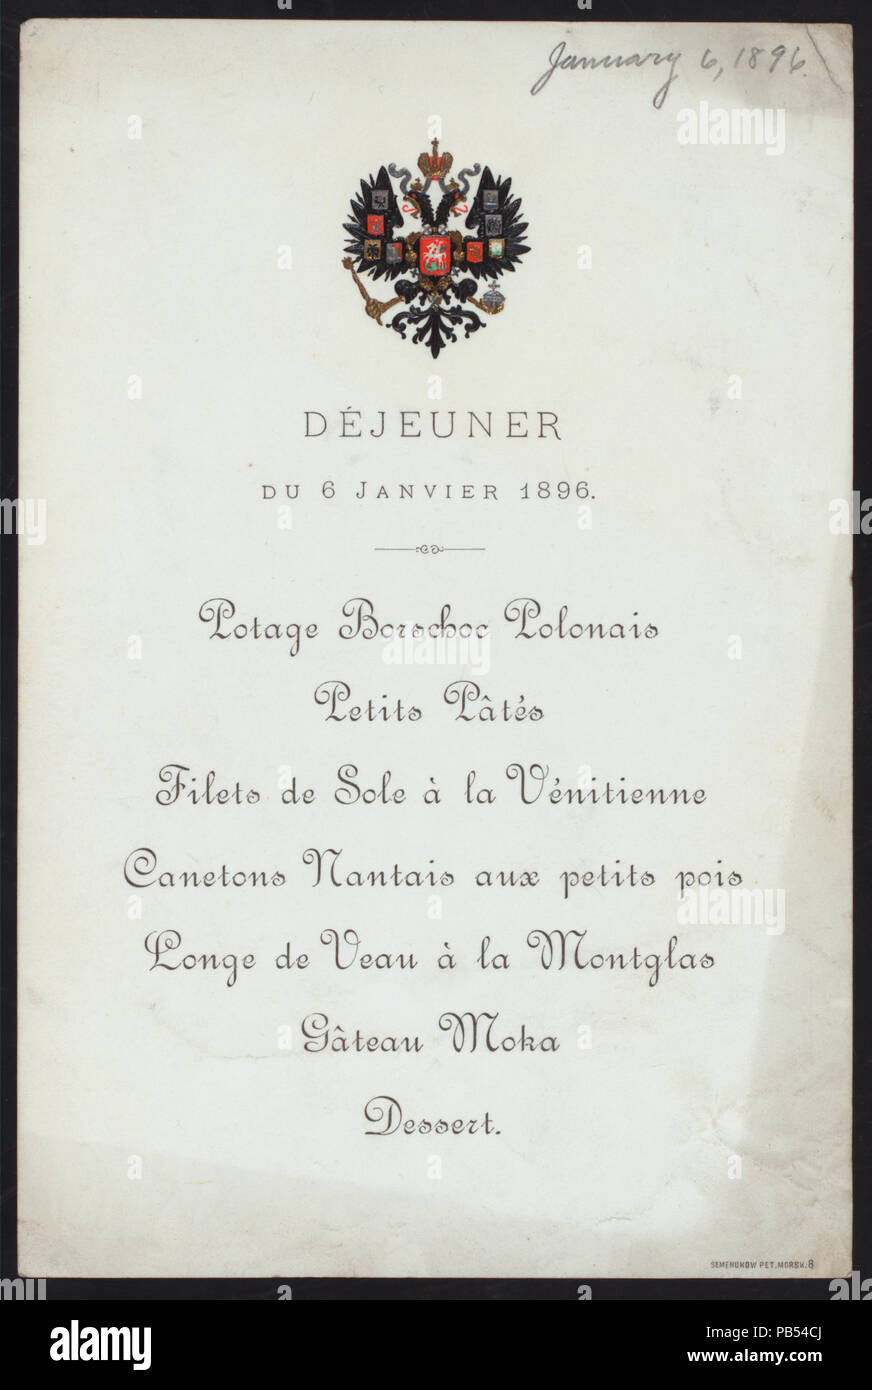 January 6, 1896.
DÉJEUNER
DU 6 JANVIER 1896.
Potage Borschoc Polonais
Petits Pâtés
Filets de Sole à la Vénitienne
Canetons Nantais aux petits pois
Longe de Veau à la Montglas
Gâteau Moka
Dessert.
SEMENUKOW PET. MORSK. 8
alamy
Image ID: PB54CJ
www.alamy.com